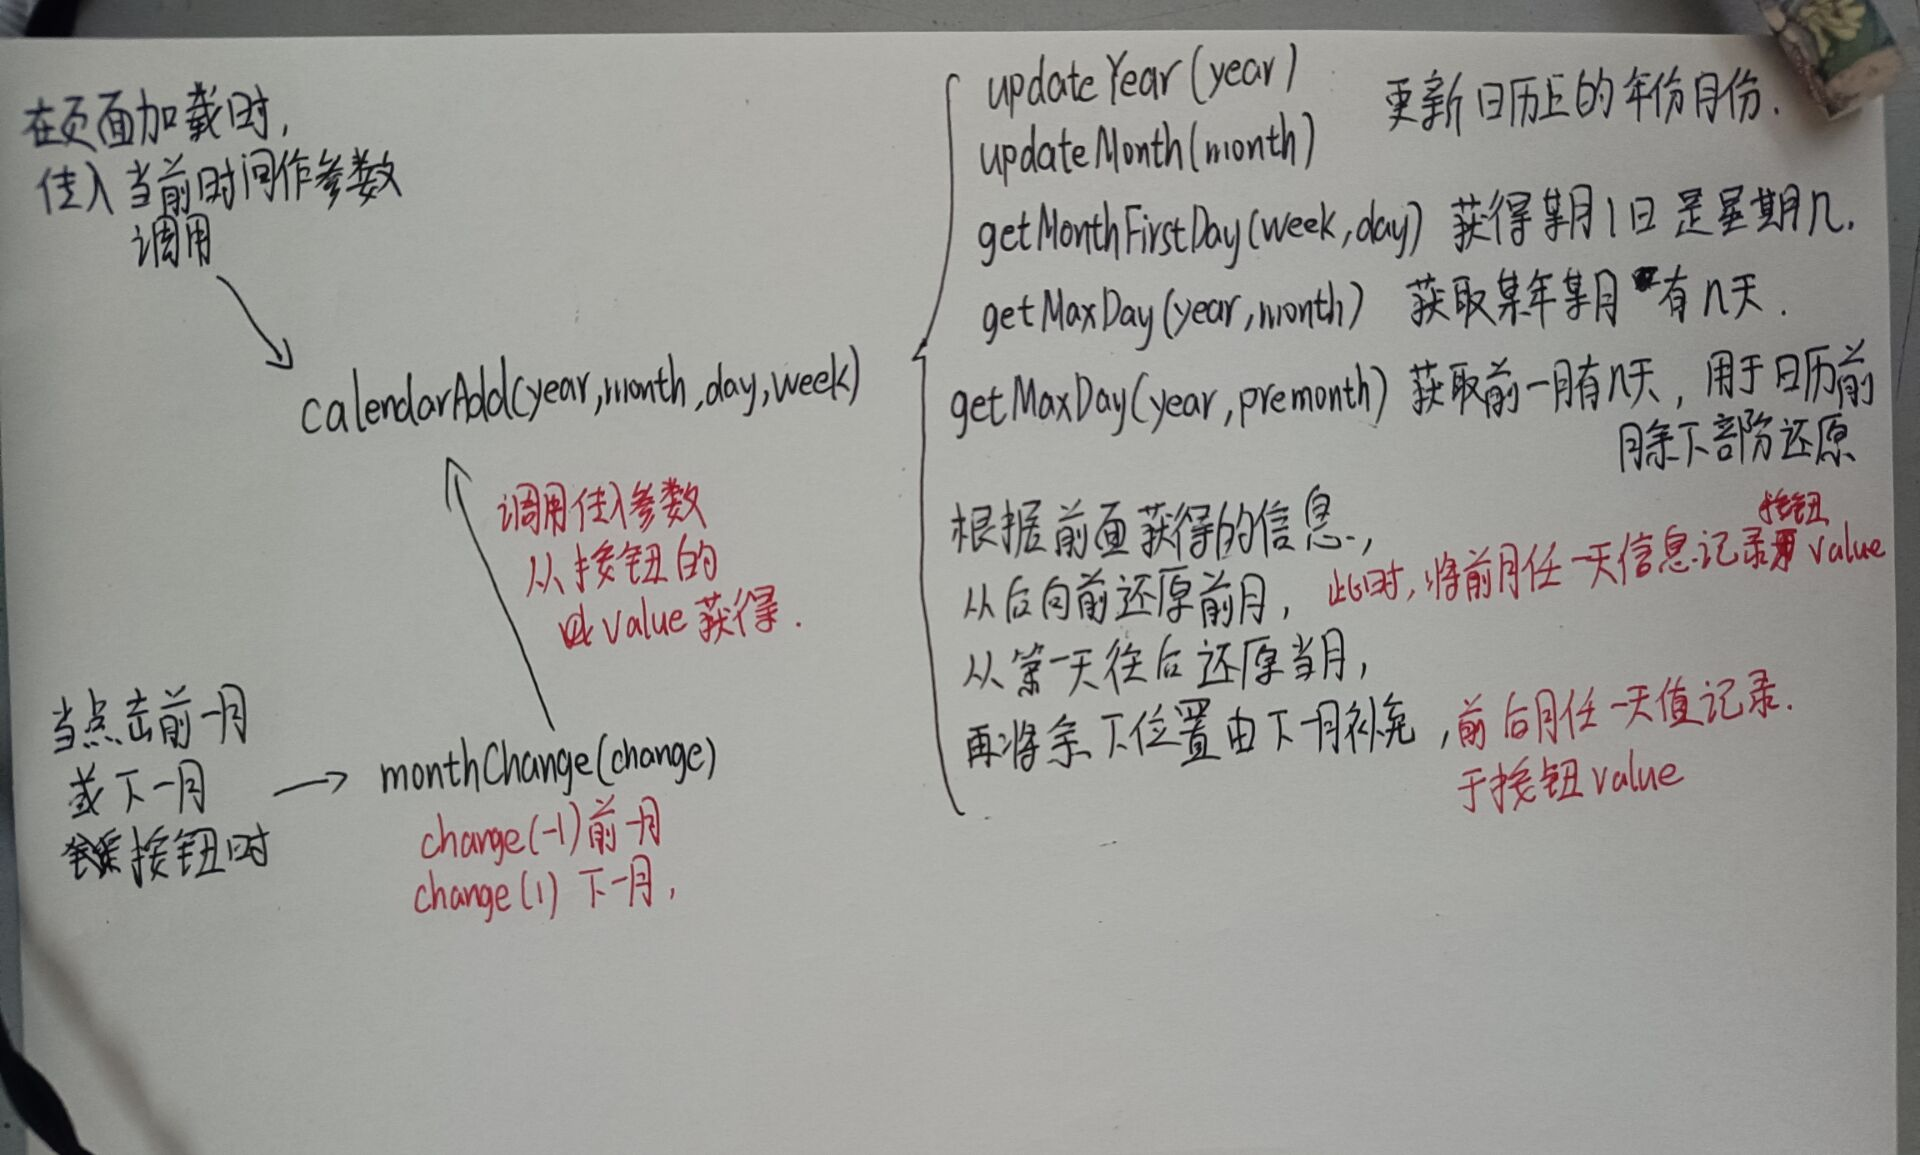 在页面加载时,
传入当前时间作参数
调用
calendarAdd(year,month,day,week)
调用传入参数
从按钮的
value获得.
当点击前一月
或下一月
按钮时
monthChange(change)
change(-1)前一月
change(1)下一月,
updateYear(year)
updateMonth(month)
更新日历上的年份月份.
getMonthFirstDay(week,day) 获得某月1日是星期几.
getMaxDay(year,month) 获取某年某月有几天.
getMaxDay(year,premonth) 获取前一月有几天,用于日历前
月余下部分还原
根据前面获得的信息,
从后向前还原前月, 此时,将前月任一天信息记录按钮value
从第一天往后还原当月,
再将余下位置由下一月补充,前后月任一天值记录.
于按钮value